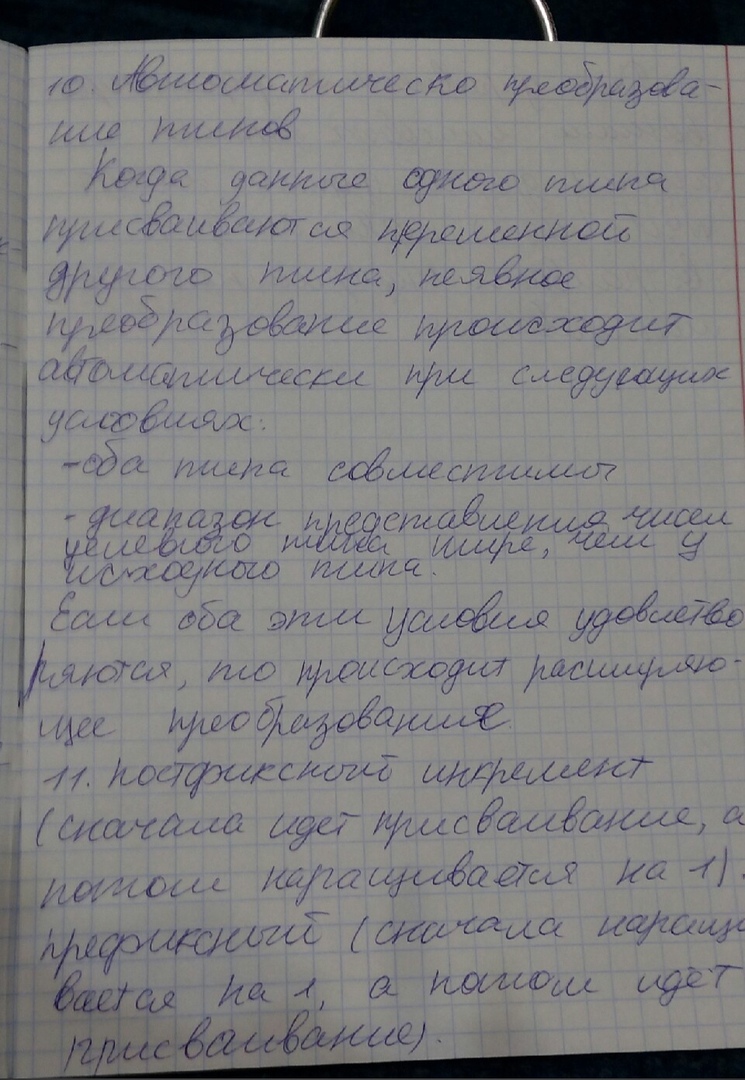 10. Автоматическо преобразова-
ние типов
Когда данные одного типа
присваиваются переменной
другого типа, неявное
преобразование происходит
автоматически при следующих
условиях:
-оба типа совместимы
-диапазон представления чисел
целевого типа шире, чем у
исходного типа.
Если оба эти условия удовлетво
ряются, то происходит расширяю-
щее преобразование.
11. постфиксный инкремент
(сначала идет присваивание, а
потом наращивается на 1).
префиксный (сначала наращи
вается на 1, а потом идет
присваивание).